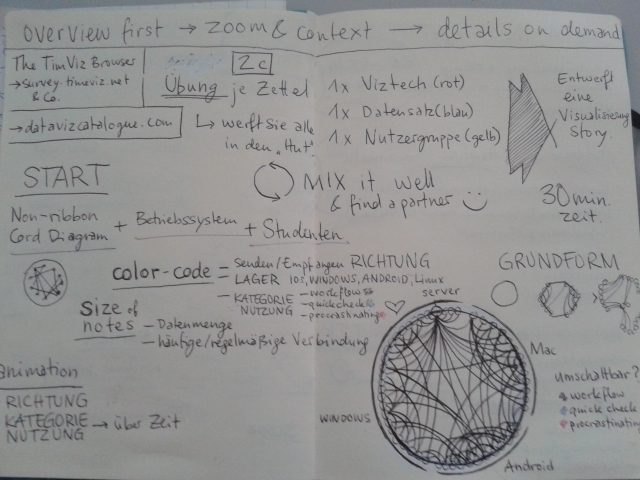 overview first → zoom & context → details on demand
The TimViz Browser
→ survey.timeviz.net
& Co.
→ datavizcatalogue.com
2c
Übung je Zettel
↳ werft sie alle
in den „Hut".
1x Viztech (rot)
1x Datensatz (blau)
1x Nutzergruppe (gelb)
Entwerft
eine
Visualisierung
Story.
START
MIX it well
& find a partner
30 min.
zeit.
Non-ribbon
Cord Diagram + Betriebssystem + Studenten
color-code = Senden/Empfangen RICHTUNG
LAGER IOS, WINDOWS, ANDROID, Linux
KATEGORIE – workflow
NUTZUNG – quick check
– procrastinating
Size of
notes – Datenmenge
– häufige/regelmäßige Verbindung
animation
RICHTUNG
KATEGORIE → über Zeit
NUTZUNG
GRUNDFORM
server
Mac
WINDOWS
Android
umschaltbar?
workflow
quick check
procrastinating